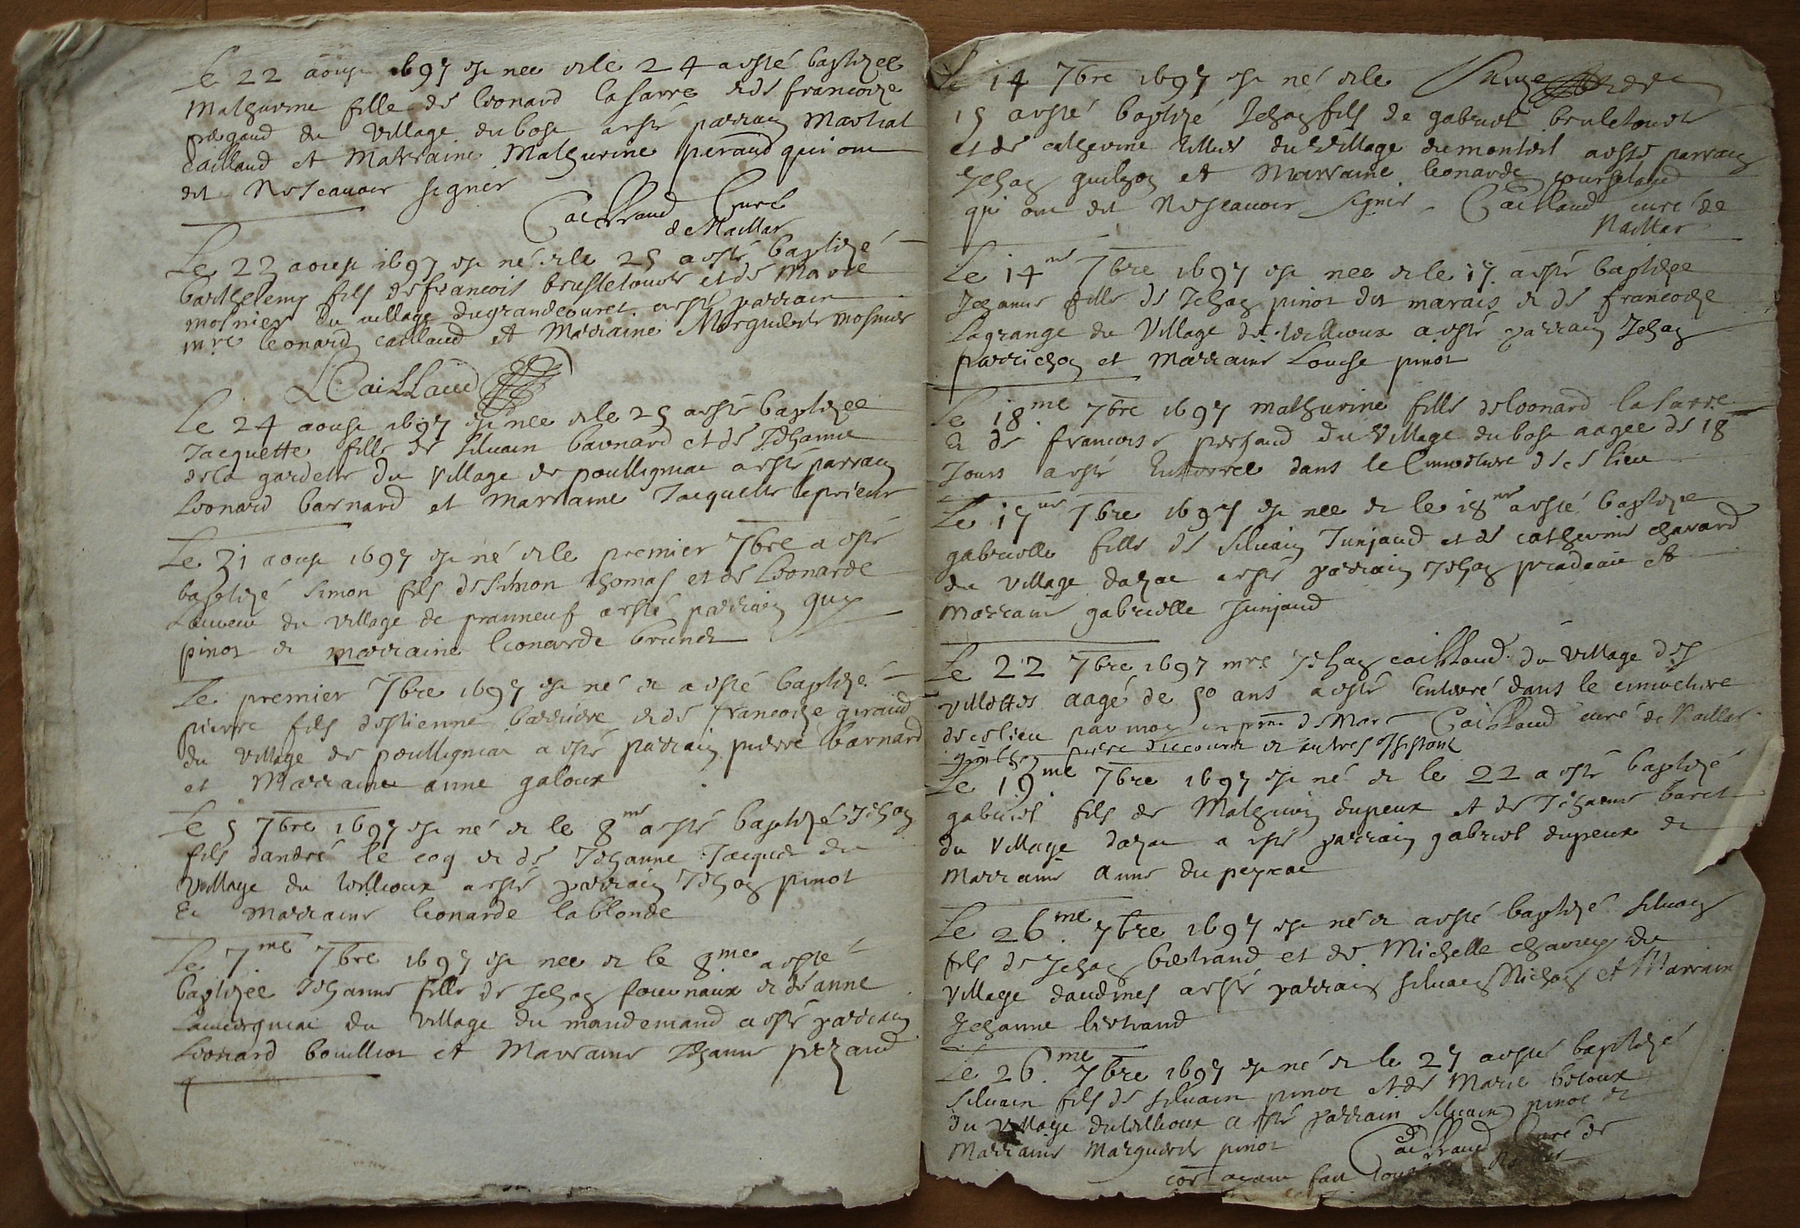 Le 22 aoust 1697 est nee et le 24 a esté baptizee
Mathurine fille de leonard lasarre et de francoize
du village du bost a esté parrain Martial
Caillaud et Marraine Mathurine peraud qui ont
dit ne scavoir signer
Caillaud Curé
de Naillat
Le 23 aoust 1697 est né et le 25 a esté baptizé
barthelemy fils de francois brusletoures et de Marie
mosnier du village du grandcouret a esté parrain
mre leonard caillaud et Marraine Marguerite mosnier
LCaillaud
Le 24 aoust 1697 est nee et le 25 a esté baptizee
Jacquette fille de silvain barnard et de Jehanne
de la gardette du village de poullignac a esté parrain
Leonard barnard et marraine Jacquette leprieur
Le 31 aoust 1697 est né et le premier 7bre a esté
baptizé simon fils de simon thomas et de Leonarde
du village de pranneuf a esté parrain guy
pinot et marraine leonarde brunet
Le premier 7bre 1697 est né et a esté baptizé
pierre fils destienne barriere et de francoize giraud
du village de poullignac a esté parrain pierre barnard
et Marraine anne galoux
Le 5 7bre 1697 est né et le 8me a esté baptizé Jehan
fils dandré le coq et de Jehanne Jacquet du
village du a esté parrain Jehan pinot
et marraine leonarde lablonde
Le 7me 7bre 1697 est nee et le 8me a esté
baptizee Jehanne fille de Jehan fournaux et de anne
du village du mandemand a esté parrain
Leonard bouilliot et Marraine Jehanne pezaud
Le 14 7bre 1697 est né et le
15 a esté baptizé Jehan fils de gabriel bruletourt
et de catherine du village du monteil a esté parrain
Jehan et Marraine leonarde
qui ont dit ne scavoir signer Caillaud curé de
Naillat
Le 14me 7bre 1697 est nee et le 17 a esté baptizee
Jehanne fille de Jehan pinot dit marais et de francoize
Lagrange du village de a esté parrain Jehan
parrichon et marraine Louise pinot
Le 18me 7bre 1697 mathurine fille de leonard lasarre
et de francoise du village du bost aagee de 18
Jours a esté enterree dans le cimetiere de ce lieu
Le 17me 7bre 1697 est nee et le 18me a esté baptizee
gabrielle fille de silvain Junjaud et de catherine chavard
du village dazac a esté parrain Jehan et
marraine gabrielle Junjaud
Le 22 7bre 1697 mre Jehan caillaud du village des
villettes aagé de 50 ans a esté enterré dans le cimetiere
de ce lieu par moy en pnce de Caillaud curé de Naillat
et autres
Le 19me 7bre 1697 est né et le 22 a esté baptizé
gabriel fils de Mathurin dupeux et de Jehanne baret
du village dazac a esté parrain gabriel dupeux et
marraine anne du peyrat
Le 26me 7bre 1697 est né et a esté baptizé silvain
fils de Jehan bertrand et de Michelle du
village daudines a esté parrain silvain et Marraine
Jehanne bertrand
Le 26me 7bre 1697 est né et le 27 a esté baptizé
silvain fils de silvain pinot et de Marie
du village du a esté parrain silvain pinot et
marraine marguerite pinot Caillaud Curé de